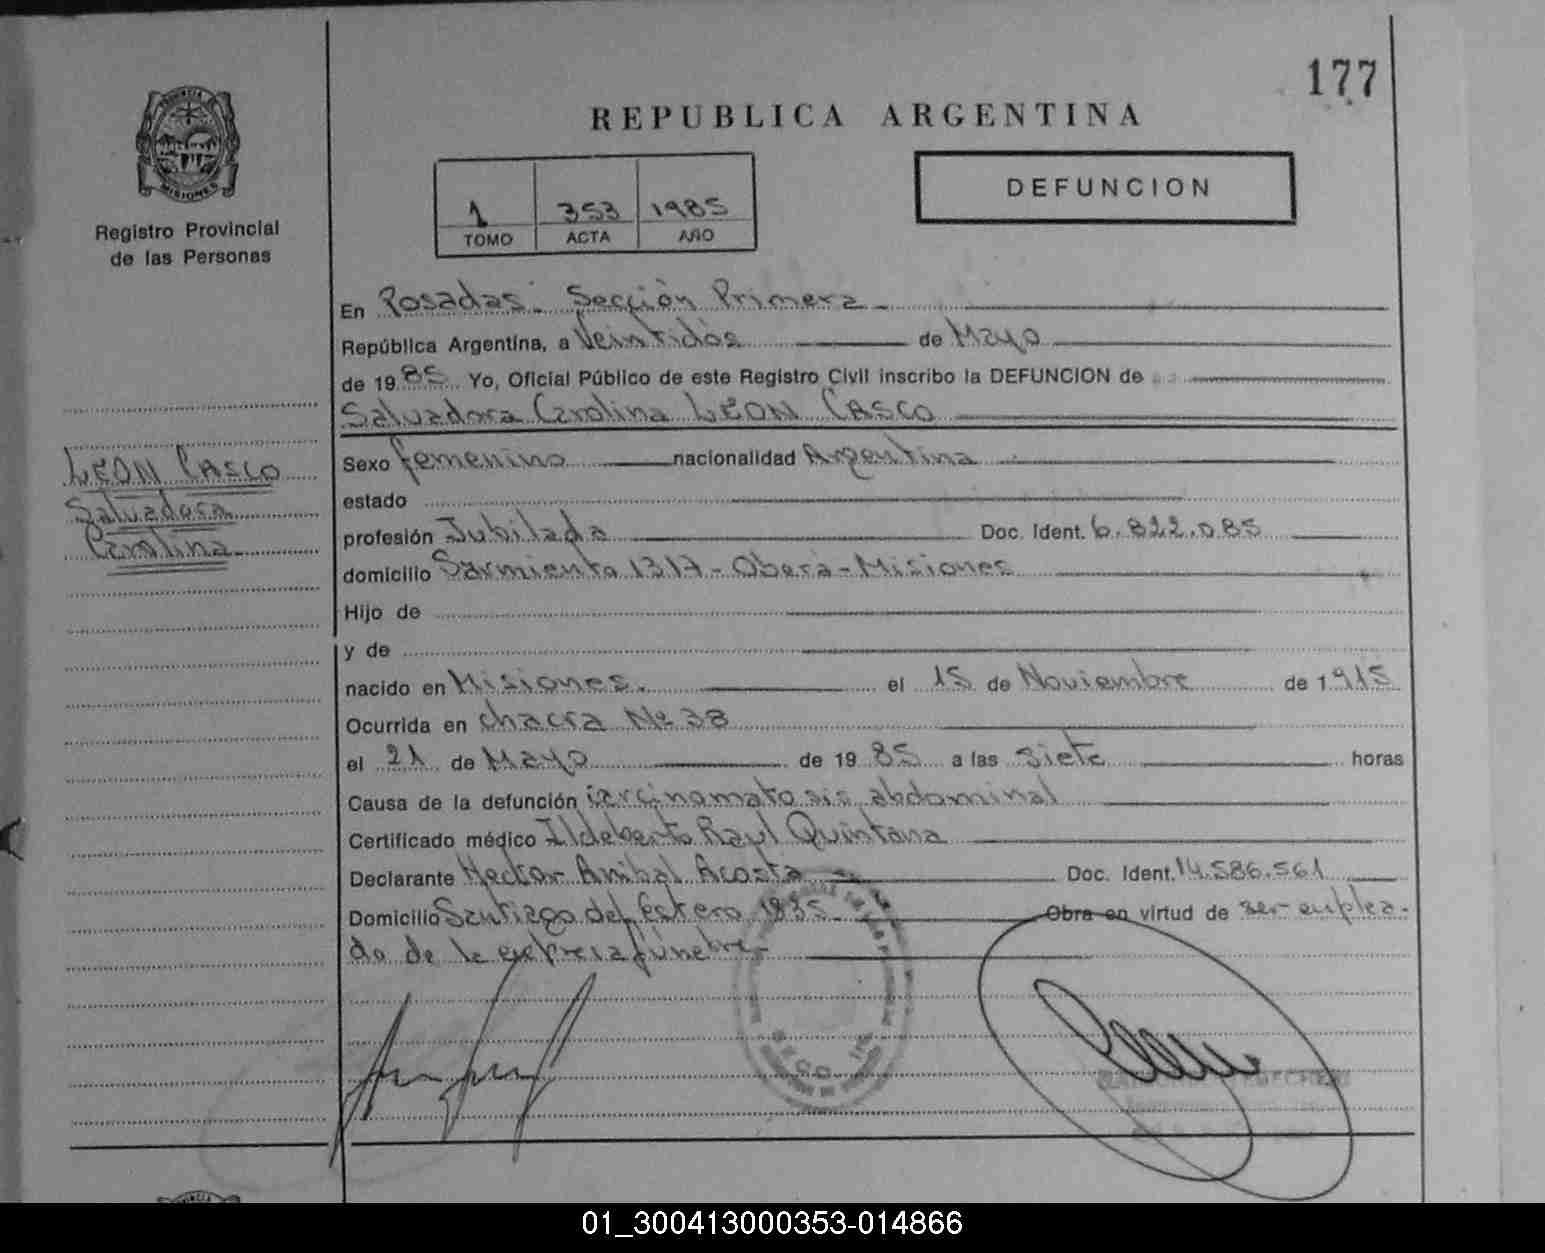 177
REPUBLICA ARGENTINA
PROVINCIA DE
MISIONES
Registro Provincial
de las Personas
1 353 1985
TOMO ACTA AÑO
DEFUNCION
En Posadas Sección Primera
República Argentina, a Veintidós de Mayo
de 1985 Yo, Oficial Público de este Registro Civil inscribo la DEFUNCION de
Salvadora Carolina LEON CASCO
LEON CASCO
Salvadora
Carolina
Sexo femenino nacionalidad Argentina
estado
profesión Jubilada Doc. Ident. 6.822.085
domicilio Sarmiento 1317 - Oberá - Misiones
Hijo de
y de
nacido en Misiones. el 15 de Noviembre de 1915
Ocurrida en chacra Nº 38
el 21 de Mayo de 1985 a las siete horas
Causa de la defunción carcinomatosis abdominal
Certificado médico Ildeberto Raul Quintana
Declarante Hector Anibal Acosta Doc. Ident. 14.586.561
Domicilio Santiago del Estero 1835 Obra en virtud de ser emplea-
do de la empresa fúnebre-
01_300413000353-014866